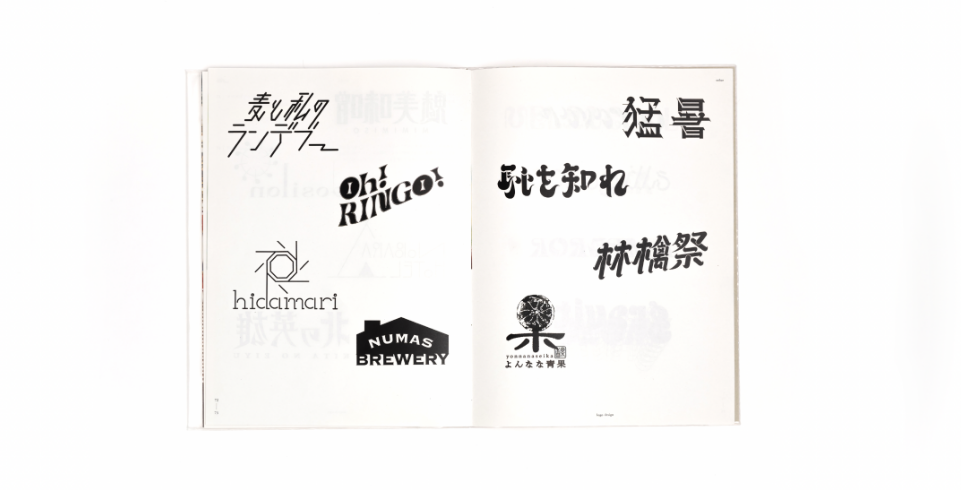 麦と私の
ランデブー
Oh!
RINGO!
hidamari
NUMAS
BREWERY
猛暑
恥を知れ
林檎祭
yonnanaseika
よんなな青果
logo design